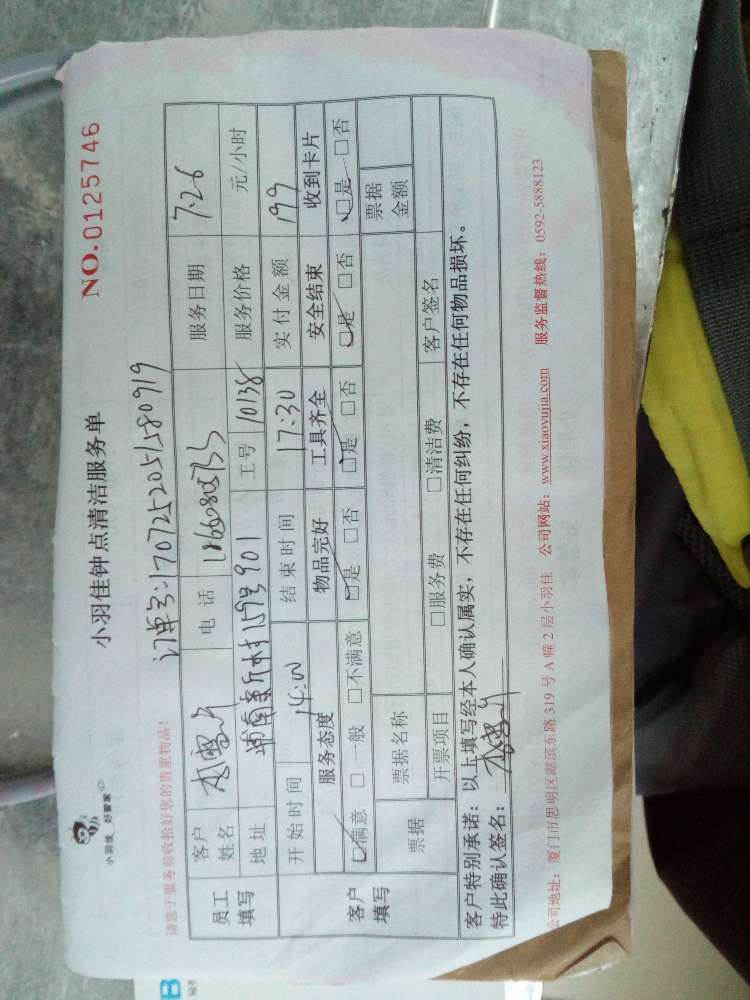 小羽佳 好管家
小羽佳钟点清洁服务单
NO.0125746
请您于服务前收拾好您的贵重物品!
订单号:1707252051580919
员工填写
客户姓名
电话
服务日期 7.26
地址 159号901
工号 10138
服务价格 元/小时
开始时间 14:00
结束时间 17:30
实付金额 199
客户填写
服务态度 物品完好 工具齐全 安全结束 收到卡片
□满意 □一般 □不满意 □是 □否 □是 □否 □是 □否 □是 □否
票据
票据名称
票据金额
开票项目 □服务费 □清洁费 客户签名
客户特别承诺:以上填写经本人确认属实,不存在任何纠纷,不存在任何物品损坏。
特此确认签名:
公司地址:厦门市思明区湖滨东路 319 号 A 幢 2 层小羽佳 公司网站:www.xiaoyujia.com 服务监督热线:0592-5888123